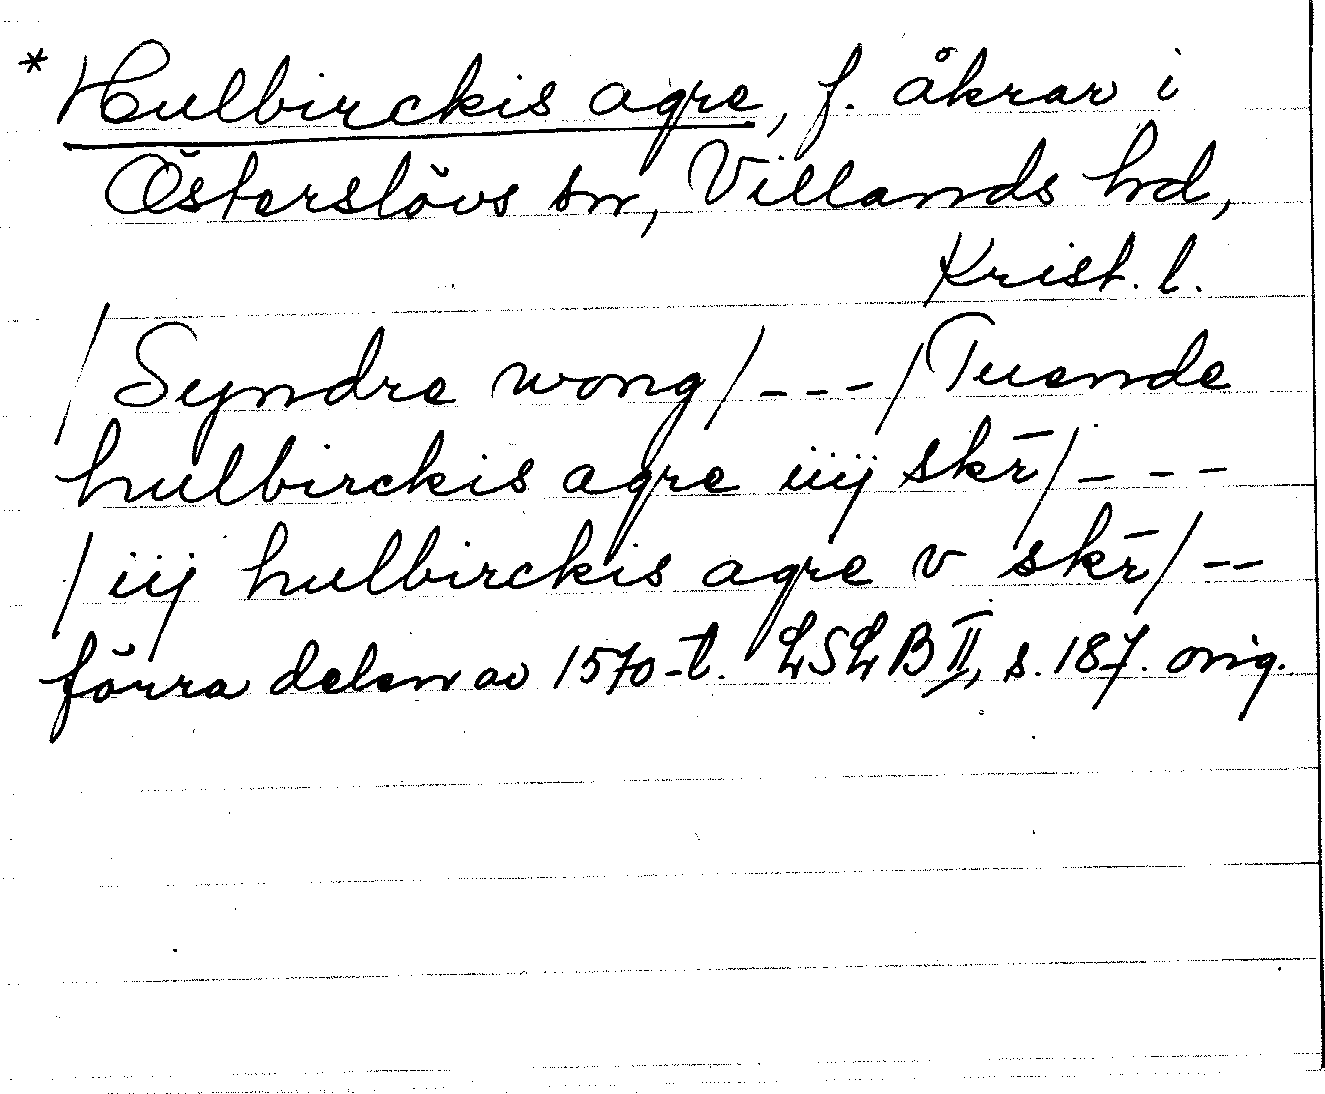 * Hulbirckis agre, f. åkrar i
Österslövs sn, Villands hd,
Krist. l.
/Syndre wong/---/Tuende
hulbirckis agre iiij skr̄/---
/iij hulbirckis agre v skr̄/--
förra delen av 1570-t. LSLB II, s. 187. orig.